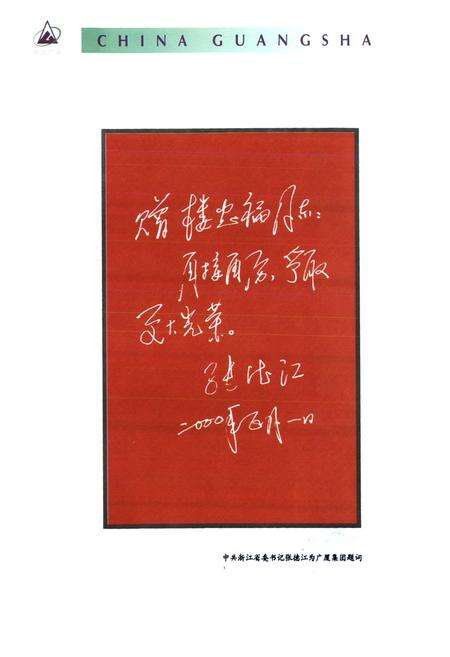 CHINA GUANGSHA
赠楼忠福同志：
再接再厉，争取
更大光荣。
张德江
二000年五月一日
中共浙江省委书记张德江为广厦集团题词